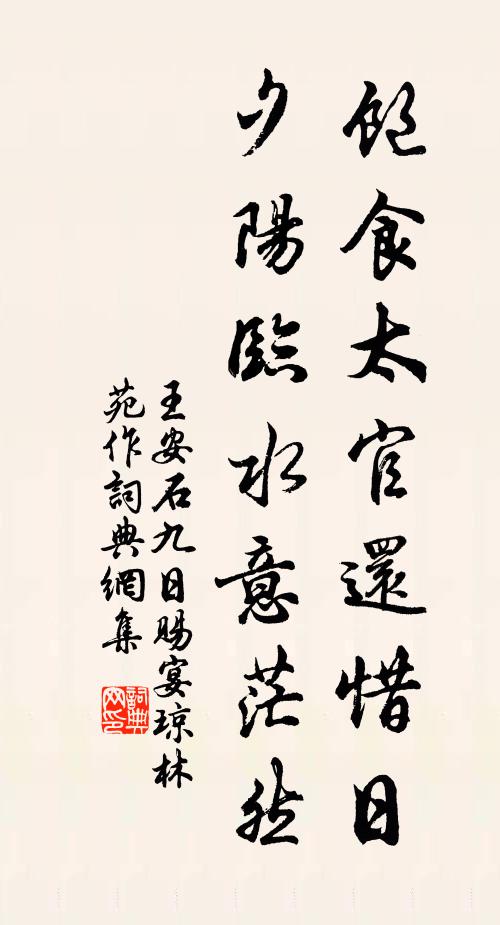 飽食太官還惜日
夕陽臨水意茫然
王安石九日賜宴琼林
苑作詞典網集
詞典
网印